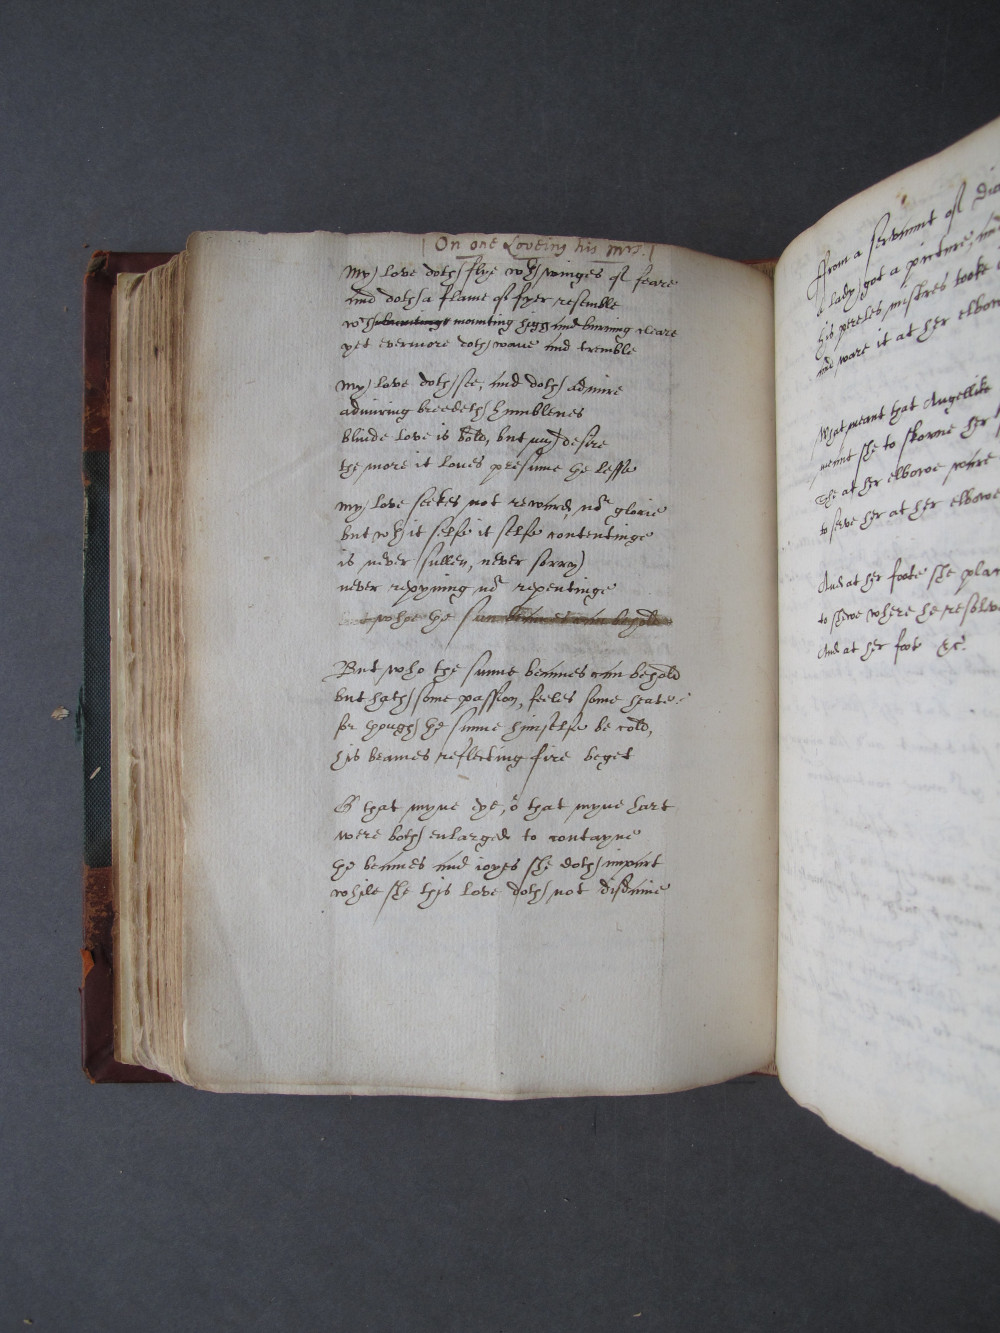 On one Loveing his Mrs.
My love doth flye wth winges of feare
and doth a flame of fyer resemble
wch mounting high and burning cleare
yet evermore doth wave and tremble
My love doth see, and doth admire
admiring breedeth humblenes
blinde love is bold, but my desire
the more it loves presume the lesse
My love seekes not reward, nor glorie
but wth it selfe it selfe contentinge
is never sullen, never sorry
never repyning nor repentinge
whoe the sun beames can behold
But who the sunne beames can behold
but hath some passion, feeles some heate
for though the sunne himselfe be cold,
his beames reflecting fire beget
O that myne eye, ô that myne hart
were both enlarged to contayne
the beames and ioyes she doth impart
while she this love doth not disdaine
From a servaunt of
a lady got a picture,
his pereles mistres tooke
and ware it at her elbow
What meant that Angellike
meant she to skorne her
The at her elbowe ware
to serve her at her elbowe
And at her foote she
to shew where he
And at her foot &c.